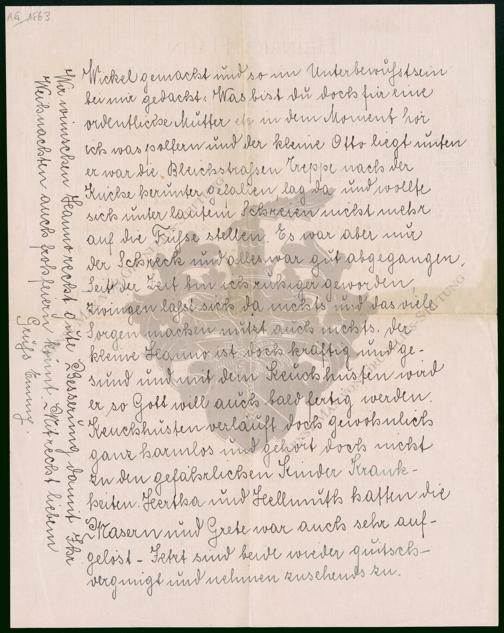 Wickel gemacht und so im Unterbewußtsein
bei mir gedacht: Was bist du doch für eine
ordentliche Mutter etc in dem Moment hör
ich was polfern und der kleine Otto liegt unten
er war die Bleichstraßen Treppe nach der
Küche herunter gefallen lag da und wollte
sich unter lautem Schreien nicht mehr
auf die Füße stellen. Es war aber nur
der Schreck und alles war gut abgegangen.
Seit der Zeit bin ich ruhiger geworden,
zwingen läßt sich da nichts und das viele
Sorgen machen nützt auch nichts. der
kleine Hanno ist doch kräftig und ge-
sund und mit dem Keuchhusten wird
er so Gott will auch bald fertig werden.
Keuchhusten verläuft doch gewöhnlich
ganz harmlos und gehört doch nicht
zu den gefährlichen Kinder Krank-
heiten. Hertha und Hellmuth hatten die
Masern und Grete war auch sehr auf-
gelöst - Jetzt sind beide wieder quitsch-
vergnügt und nehmen zusehends zu.
Wir wünschen Hanno recht gute Besserung damit Ihr
Weihnachten auch froh feiern könnt. Mit recht liebem
Gruß Emmy.
AG 1563